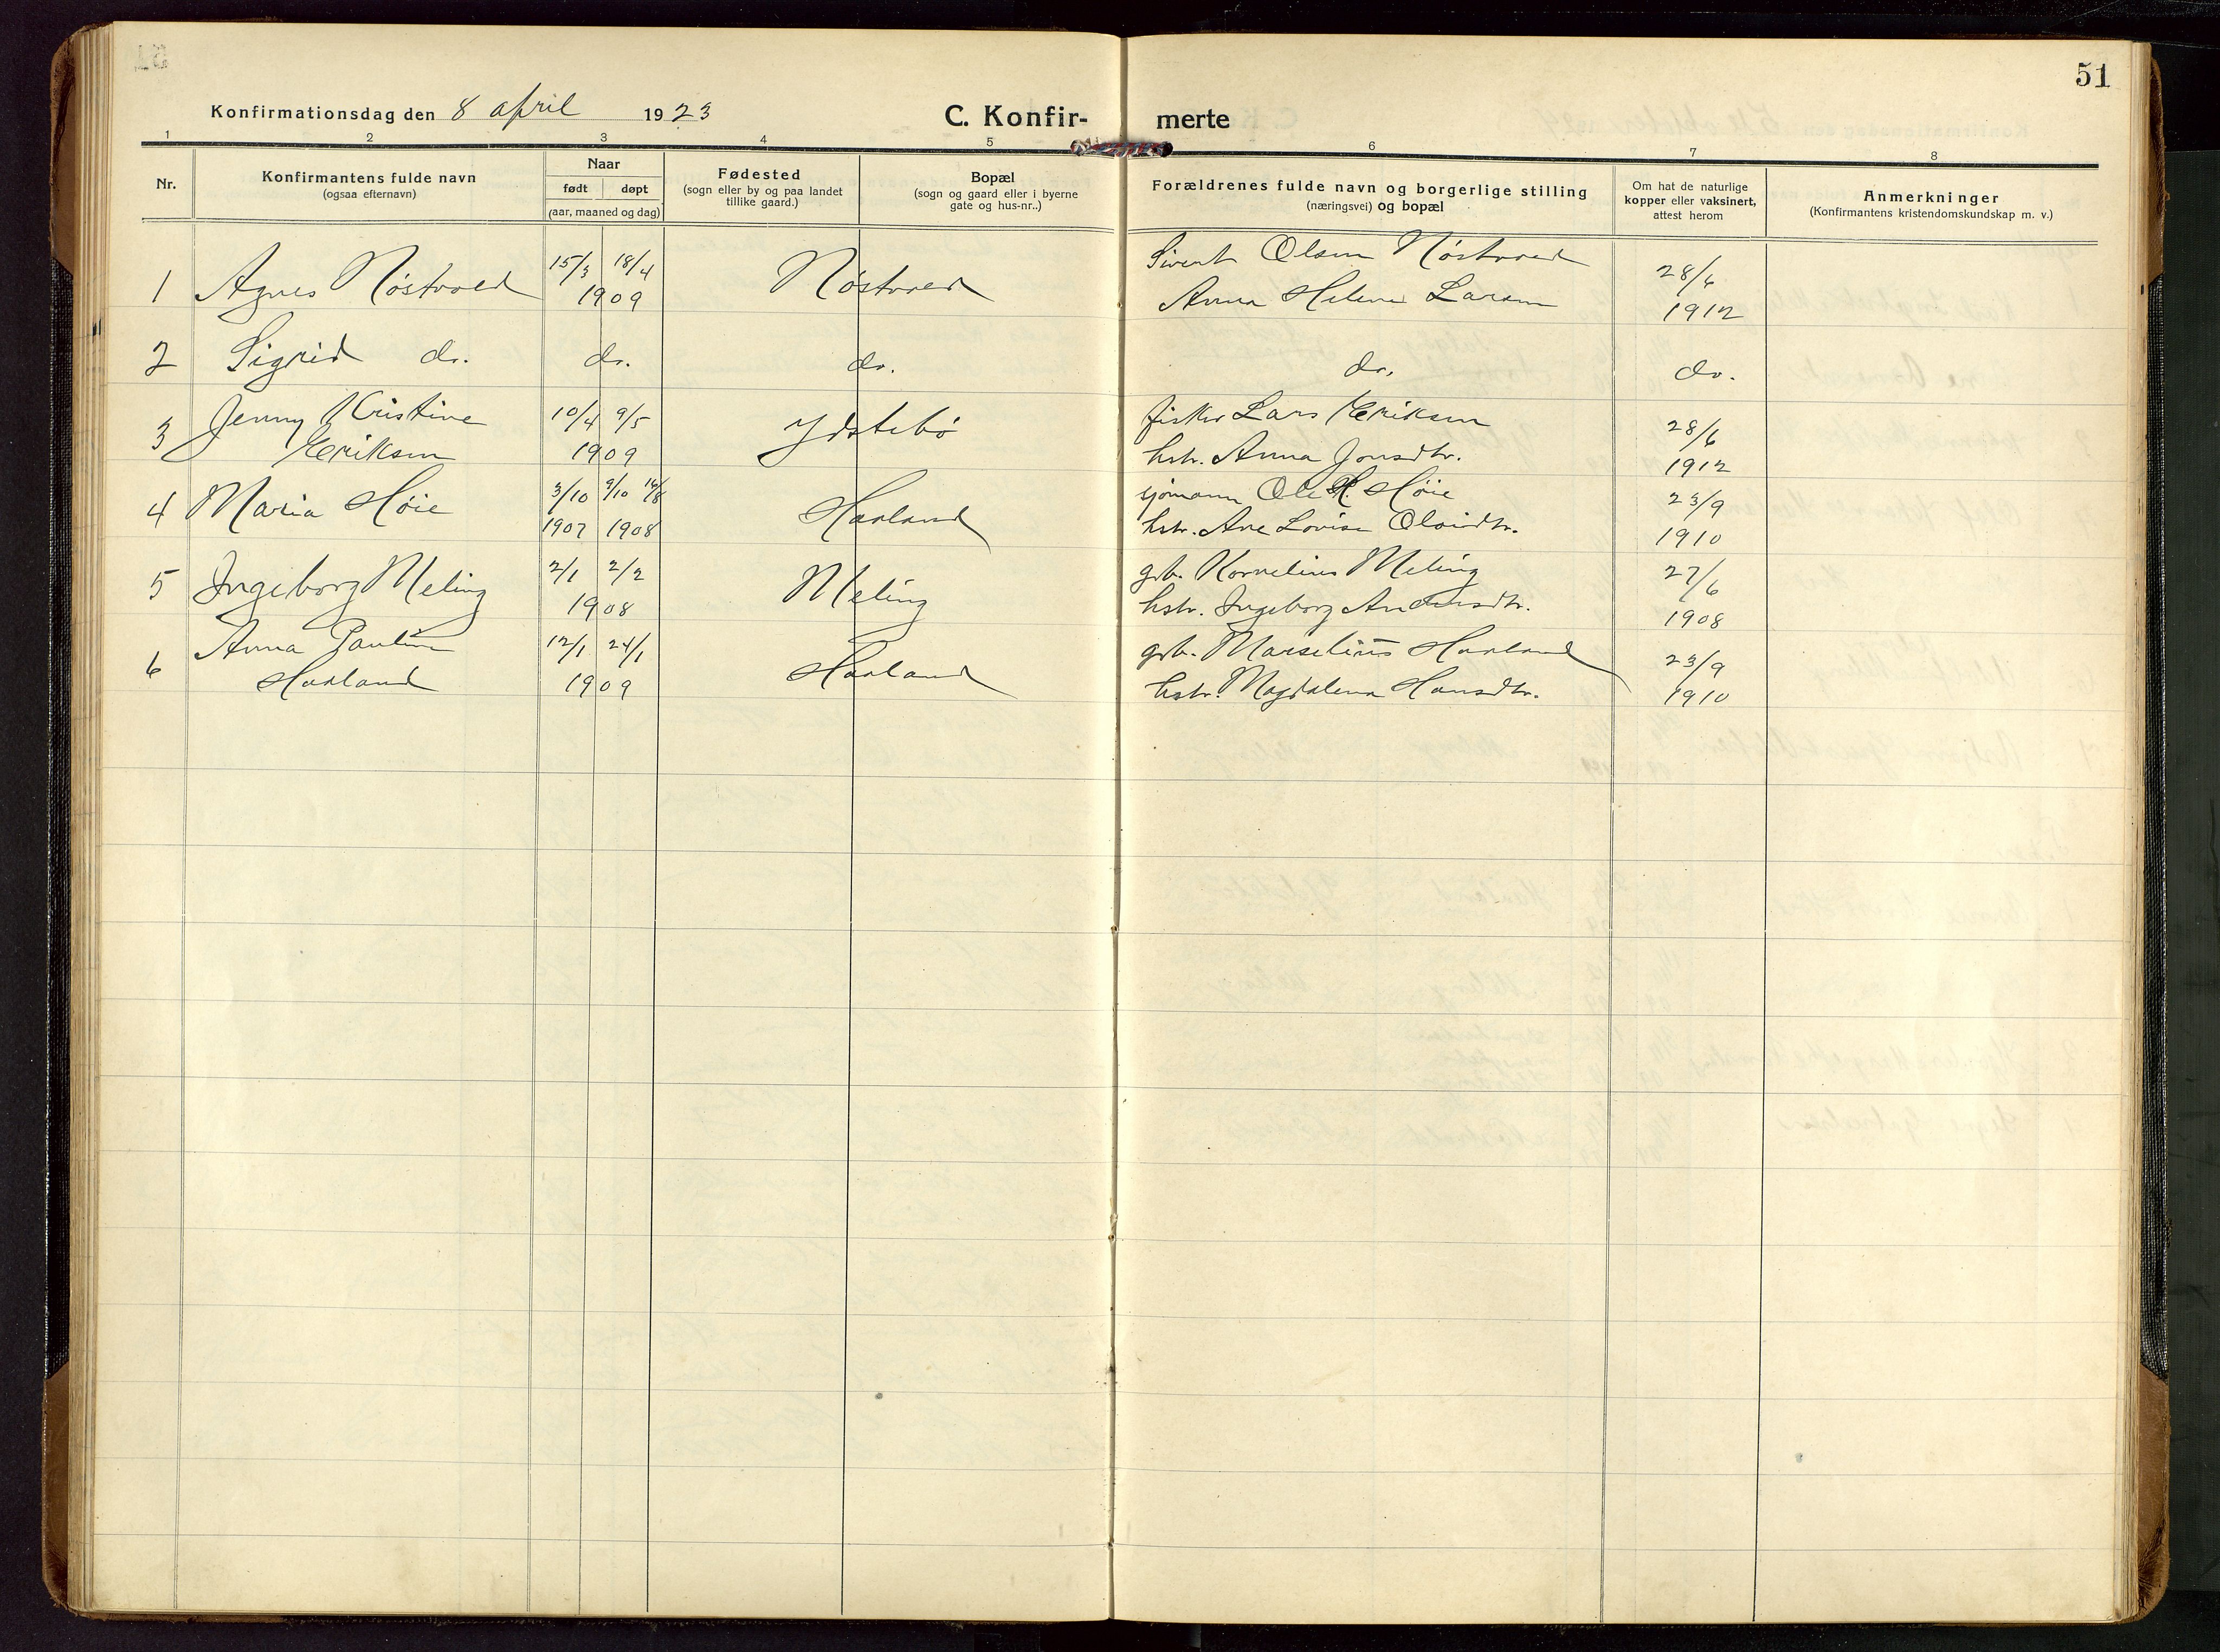 51
Konfirmationsdag den 8 april 1923 C. Konfir- merte
1 2 3 4 5 6 7 8
Nr. Konfirmantens fulde navn (ogsaa efternavn) Naar født døpt (aar, maaned og dag) Fødested (sogn eller by og paa landet tillike gaard.) Bopæl (sogn og gaard eller i byerne gate og hus-nr..) Forældrenes fulde navn og borgerlige stilling (næringsvei) og bopæl Om hat de naturlige kopper eller vaksinert, attest herom Anmerkninger (Konfirmantens kristendomskundskap m. v.)
1 Agnes Nøstvoed 15/3 18/4 1909 Nøstvoed Sivert Olsen Nøstvoed 28/6
Anna Helene Larsen 1912
2 Sigrid do. do. do. do. do.
3 Jenny Kristine 10/4 9/5 Ydstebø fisker Lars Eriksen 28/6
Eriksen 1909 hstr. Anna Jonsdtr. 1912
4 Maria Høie 3/10 9/10 16/8 Haaland sjømann Ole H. Høie 23/9
1907 1908 hstr. Ane Lovise Olavidtr. 1910
5 Ingeborg Meling 2/1 2/2 Meling gb. Kornelius Meling 27/6
1908 hstr. Ingeborg Andersdtr. 1908
6 Anna Pauline 12/1 24/1 Haaland gb. Marselius Haaland 23/9
Haaland 1909 hstr. Magdalena Hansdtr. 1910